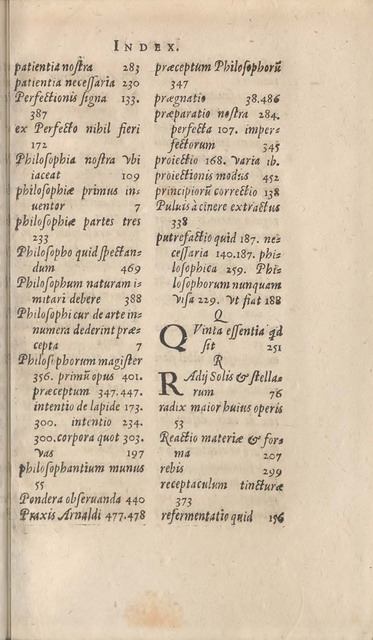 INDEX.
patientia nostra 283
patientia necessaria 230
Perfectionis signa 133.
387
ex Perfecto nihil fieri
172
Philosophia nostra vbi
iaceat 109
philosophiæ primus in-
uentor 7
philosophiæ partes tres
233
Philosopho quid spectan-
dum 469
Philosophum naturam i-
mitari debere 388
Philosophi cur de arte in-
numera dederint præ-
cepta 7
Philosophorum magister
356. primũ opus 401.
præceptum 347.447.
intentio de lapide 173.
300. intentio 234.
300. corpora quot 303.
vas 197
philosophantium munus
55
Pondera obseruanda 440
Praxis Arnaldi 477.478
præceptum Philosophorũ
347
prægnatio 38.486
præparatio nostra 284.
perfecta 107. imper-
fectorum 345
proiectio 168. varia ib.
proiectionis modus 452
principiorũ correctio 138
Puluis à cinere extractus
338
putrefactio quid 187. ne-
cessaria 140.187. phi-
losophica 259. Phi-
losophorum nunquam
visa 229. vt fiat 188
Q
QVinta essentia qd
sit 251
R
RAdij Solis & stella-
rum 76
radix maior huius operis
53
Reactio materiæ & for-
ma 207
rebis 299
receptaculum tincturæ
373
refermentatio quid 156